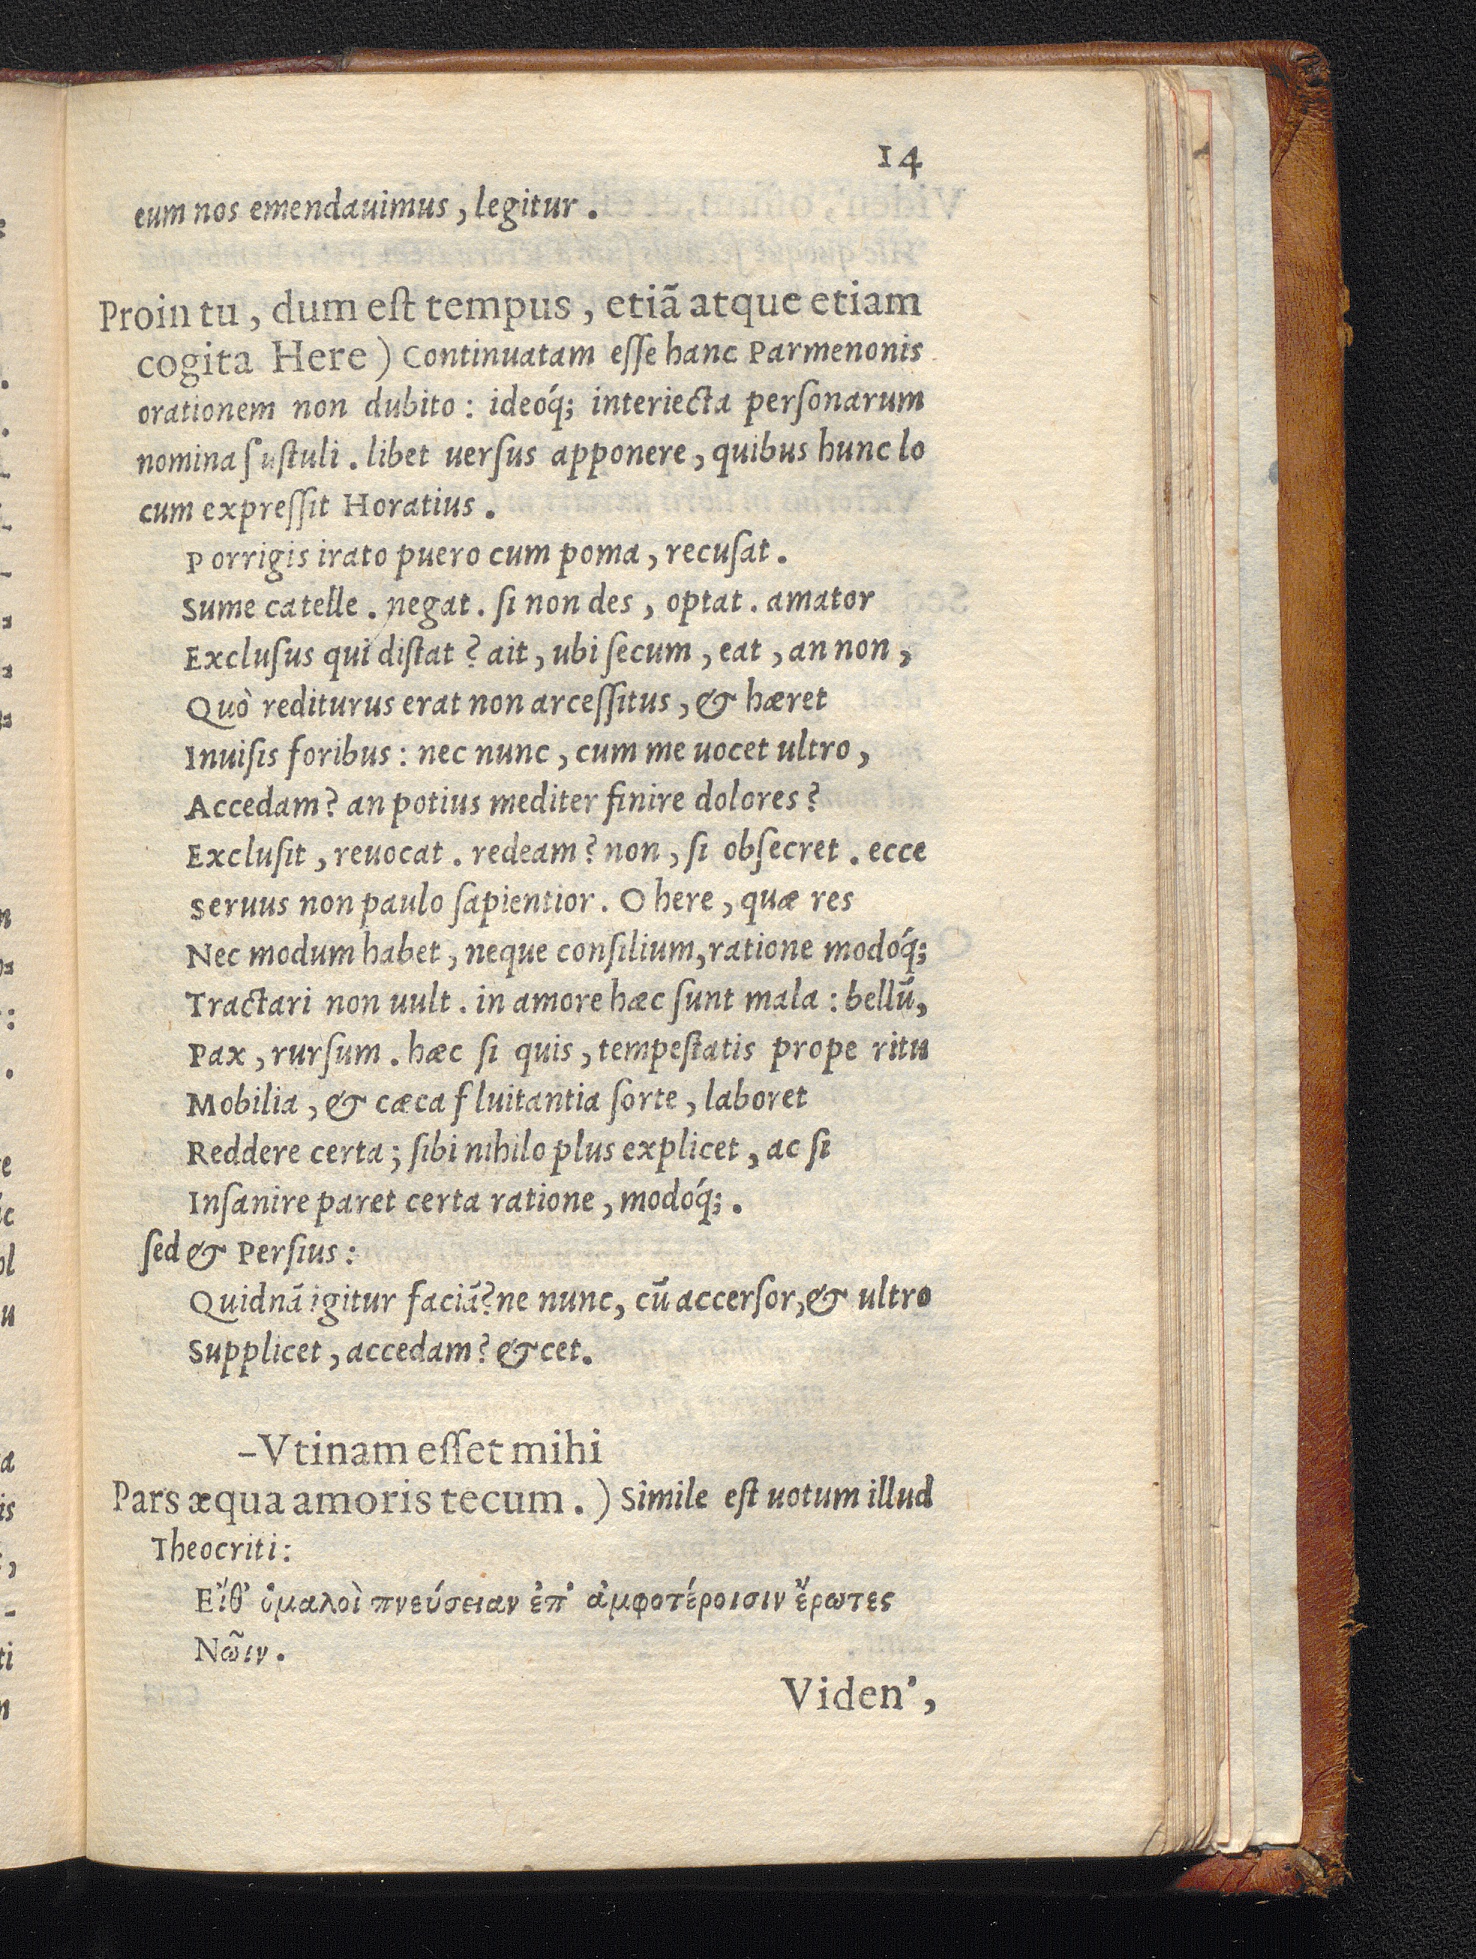 14
eum nos emendauimus, legitur.
Proin tu, dum est tempus, etiã atque etiam
cogita Here) Continuatam esse hanc Parmenonis
orationem non dubito: ideóq; interiecta personarum
nomina sustuli. libet uersus apponere, quibus hunc lo
cum expressit Horatius.
Porrigis irato puero cum poma, recusat.
Sume catelle. negat. si non des, optat. amator
Exclusus qui distat? ait, ubi secum, eat, an non,
Quò rediturus erat non arcessitus, & hæret
Inuisis foribus: nec nunc, cum me uocet ultro,
Accedam? an potius mediter finire dolores?
Exclusit, reuocat. redeam? non, si obsecret. ecce
Seruus non paulo sapientior. O here, quæ res
Nec modum habet, neque consilium, ratione modóq;
Tractari non uult. in amore hæc sunt mala: bellũ,
Pax, rursum. hæc si quis, tempestatis prope ritu
Mobilia, & cæca fluitantia sorte, laboret
Reddere certa; sibi nihilo plus explicet, ac si
Insanire paret certa ratione, modóq;.
sed & Persius:
Quidnã igitur faciã? ne nunc, cũ accersor, & ultro
Supplicet, accedam? & cet.
–Vtinam esset mihi
Pars æqua amoris tecum.) Simile est uotum illud
Theocriti:
Εἴθ' ὁμαλοὶ πνεύσειαν ἐπ' ἀμφοτέροισιν ἔρωτες
Νῶιν.
Viden',